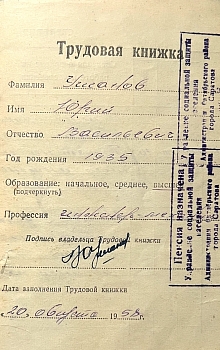 Трудовая книжка
Фамилия Усманов
Имя Юрий
Отчество Васильевич
Год рождения 1935
Образование: начальное, среднее, высш
(подчеркнуть)
Профессия инженер-ме
Подпись владельца Трудовой книжки
Дата заполнения Трудовой книжки
20 августа 1958 г.
Управление социальной защиты
населения
Администрации Октябрьского района
города Саратова
Пенсия назначена
Управление социальной защиты
населения
Администрации Октябрьского района
города Саратова